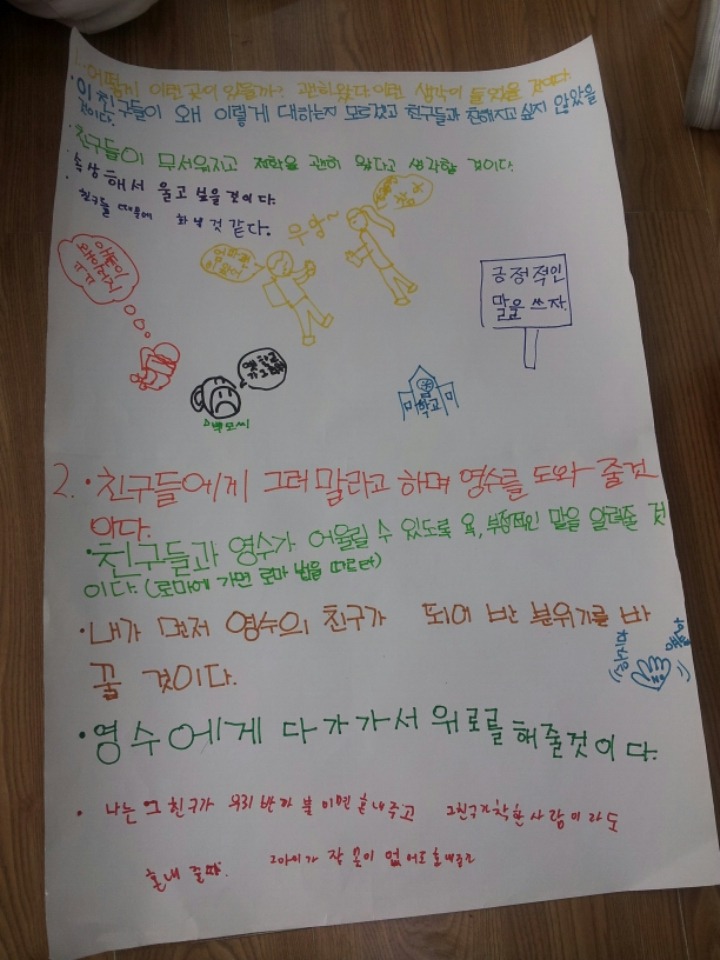 1. 어떻게 이런 곳이 있을까? 괜히 왔다. 이런 생각이 들었을 것이다.
· 이 친구들이 왜 이렇게 대하는지 모르겠고 친구들과 친해지고 싶지 않았을
것이다.
· 친구들이 무서워지고 전학을 괜히 왔다고 생각할 것이다.
· 속상해서 울고 싶을것이다.
· 친구들 때문에 화날것 같다.
우당~
애들이
왜이러지
ㅠㅠ
긍정적인
말을 쓰자.
학교
2. · 친구들에게 그러 말라고 하며 영수를 도와 줄것
이다.
· 친구들과 영수가 어울릴 수 있도록 욕, 부정적인 말을 알려줄 것
이다. (로마에 가면 로마 법을 따르라)
· 내가 먼저 영수의 친구가 되어 반 분위기를 바
꿀 것이다.
하지마
· 영수에게 다가가서 위로를 해줄것이다.
· 나는 그 친구가 우리 반과 불이면 혼내주고 그친구가 착한 사람이라도
혼내 줄따. 그아이가 잘못이 없어도 혼내주고